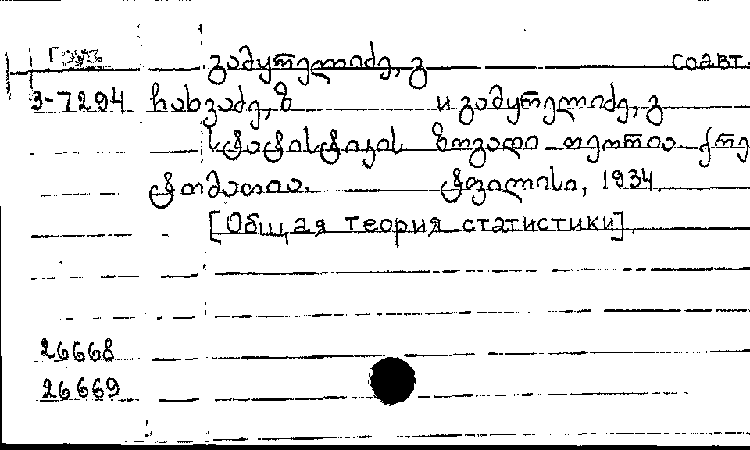 Груз
გამყრელიძე, გ соавт.
3-7294 ჩახვაძე, ზ и გამყრელიძე, გ
სტატისტიკის ზოგადი თეორია
ტფილისი, 1934
[Общая теория статистики].
26668
26669